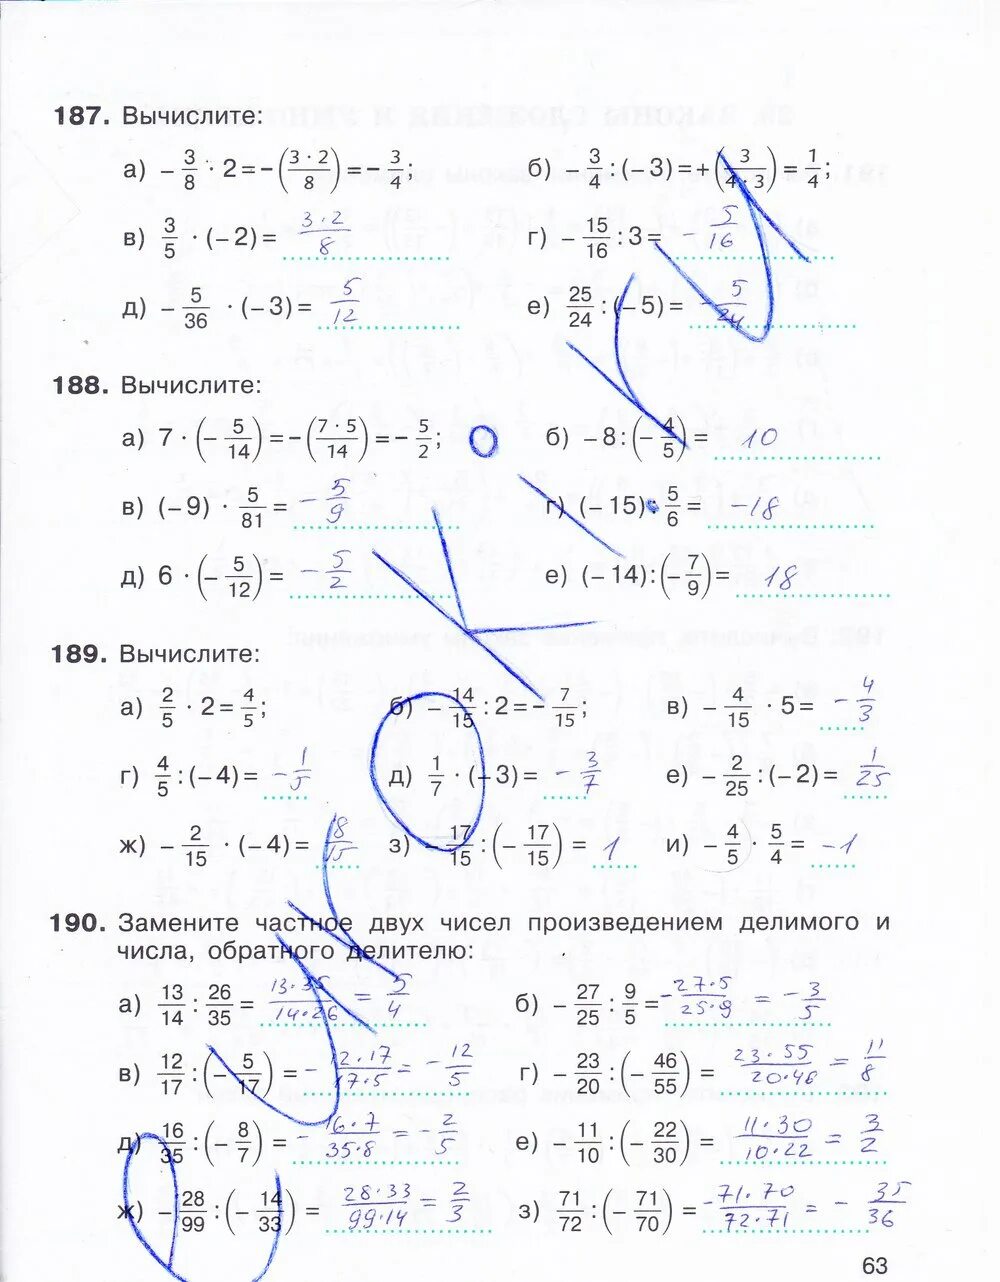 187. Вычислите:
а) −3/8 · 2 = −(3 · 2/8) = −3/4; б) −3/4 : (−3) = +(3/4 · 3) = 1/4;
в) 3/5 · (−2) = 3·2/8 г) −15/16 : 3 = −5/16
д) −5/36 · (−3) = 5/12 е) 25/24 : (−5) = −5/24
188. Вычислите:
а) 7 · (−5/14) = −(7 · 5/14) = −5/2; б) −8 : (−4/5) = 10
в) (−9) · 5/81 = −5/9 г) (−15) : 5/6 = −18
д) 6 · (−5/12) = −5/2 е) (−14) : (−7/9) = 18
189. Вычислите:
а) 2/5 · 2 = 4/5; б) −14/15 : 2 = −7/15; в) −4/15 · 5 = −4/3
г) 4/5 : (−4) = −1/5 д) 1/7 · (−3) = −3/7 е) −2/25 : (−2) = 1/25
ж) −2/15 · (−4) = 8/15 з) −17/15 : (−17/15) = 1 и) −4/5 · 5/4 = −1
190. Замените частное двух чисел произведением делимого и
числа, обратного делителю:
а) 13/14 : 26/35 = 13·35/14·26 = 5/4 б) −27/25 : 9/5 = −27·5/25·9 = −3/5
в) 12/17 : (−5/17) = −12·17/17·5 = −12/5 г) −23/20 : (−46/55) = 23·55/20·46 = 11/8
д) 16/35 : (−8/7) = −16·7/35·8 = −2/5 е) −11/10 : (−22/30) = 11·30/10·22 = 3/2
ж) −28/99 : (−14/33) = 28·33/99·14 = 2/3 з) 71/72 : (−71/70) = −71·70/72·71 = −35/36
63